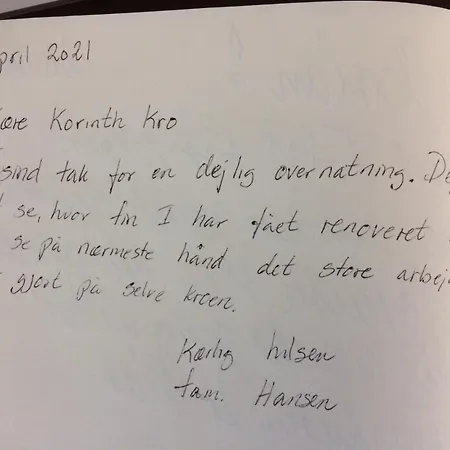 pril 2021
ære Korinth Kro
sind tak for en dejlig overnatning. De
se, hvor fin I har fået renoveret
se på nærmeste hånd det store arbej
gjort på selve kroen.
Kærlig hilsen
fam. Hansen